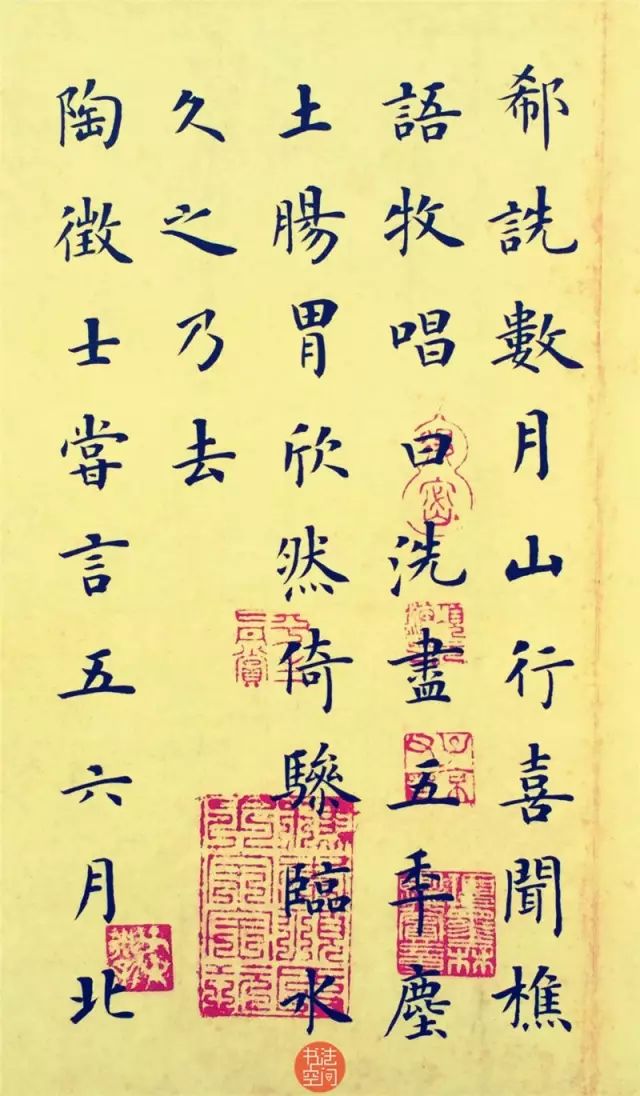 郗詵數月山行喜聞樵
語牧唱曰洗盡五年塵
土腸胃欣然倚驂臨水
久之乃去
陶徵士嘗言五六月北
书法
空间